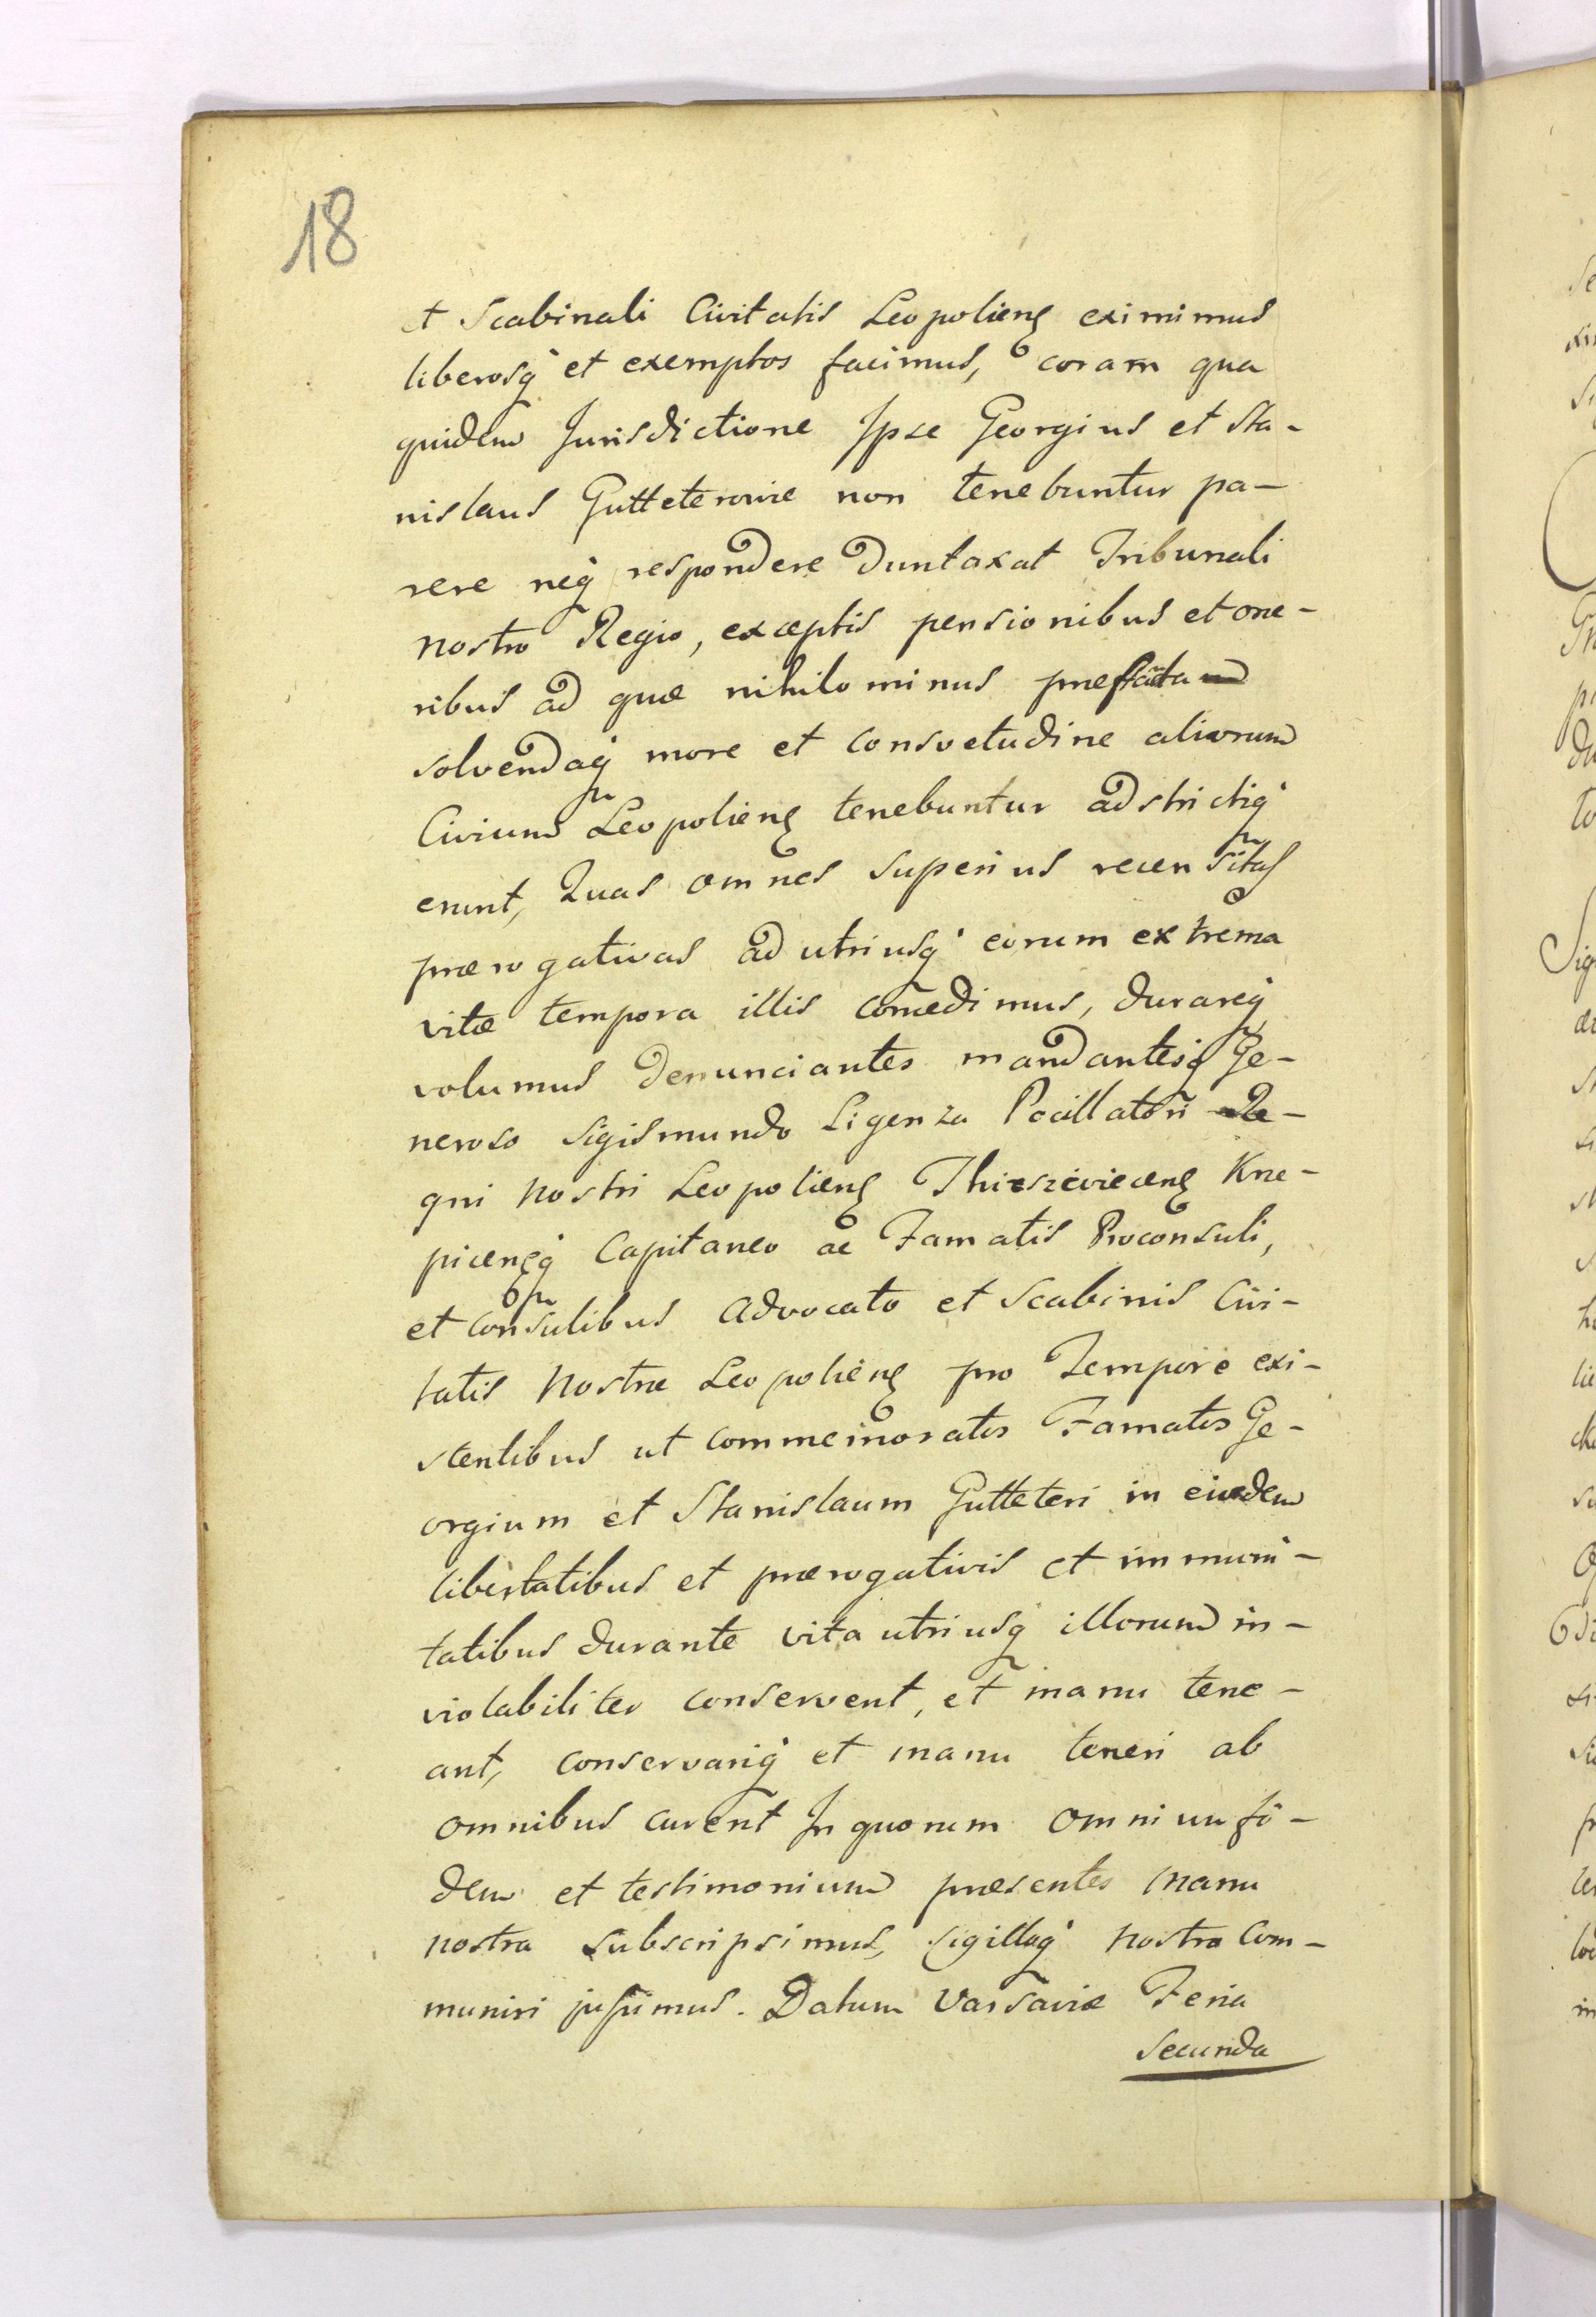 18
et Scabinali Civitatis Leopolienȩ eximimus
liberosq' et exemptos facimus, coram qua
quidem Jurisdictione Ipse Georgius et Sta-
nislaus Gutteterowie non tenebuntur pa-
rere neq' respondere duntaxat Tribunali
nostro Regio, exceptis pensionibus et one-
ribus ad quæ nihilominus
solvendaq' more et consvetudine aliorum
Civium Leopolienȩ tenebuntur adstrictiq'
erunt, Quas omnes superius recensitas
prærogativas ad utriusq' eorum extrema
vitæ tempora illis concedimus, durareq'
volumus denunciantes mandantesq' Ge-
neroso Sigismundo Ligenza Pocillatori Re-
gni nostri Leopolienȩ Kne-
picenȩq' Capitaneo ac Famatis Proconsuli,
et Consulibus Advocato et Scabinis Civi-
tatis Nostræ Leopolienȩ pro Tempore exi-
stentibus ut commemoratos Famatos Ge-
orgium et Stanislaum Gutteteri in eisdem
libertatibus et prærogativis et immuni-
tatibus durante vita utriusq' illorum in-
violabiliter conservent, et manu tene-
ant, conservariq' et manu teneri ab
omnibus curent In quorum omnium fi-
dem et testimonium præsentes manu
nostra subscripsimus, sigilloq' nostro Com-
muniri jussimus. Datum Varsaviæ Feria
Secunda